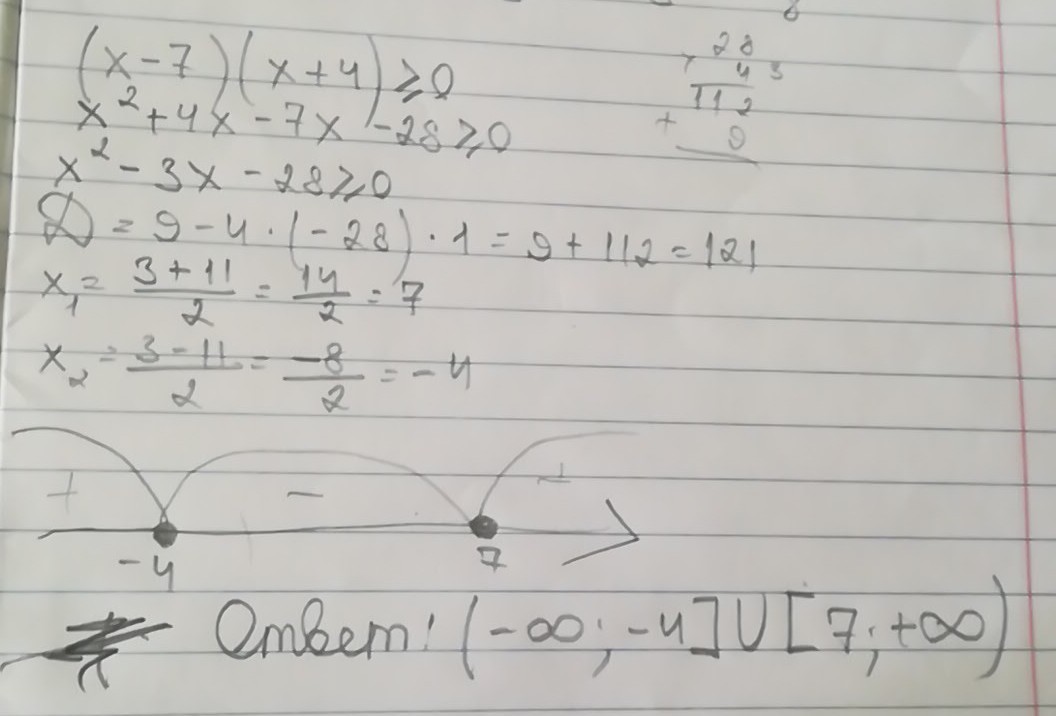 (x-7)(x+4)≥0
x²+4x-7x-28≥0
x²-3x-28≥0
D=9-4·(-28)·1=9+112=121
x₁=(3+11)/2=14/2=7
x₂=(3-11)/2=-8/2=-4
28
4 3
112
+ 9
+ - +
-4 7
Ответ: (-∞;-4]∪[7;+∞)